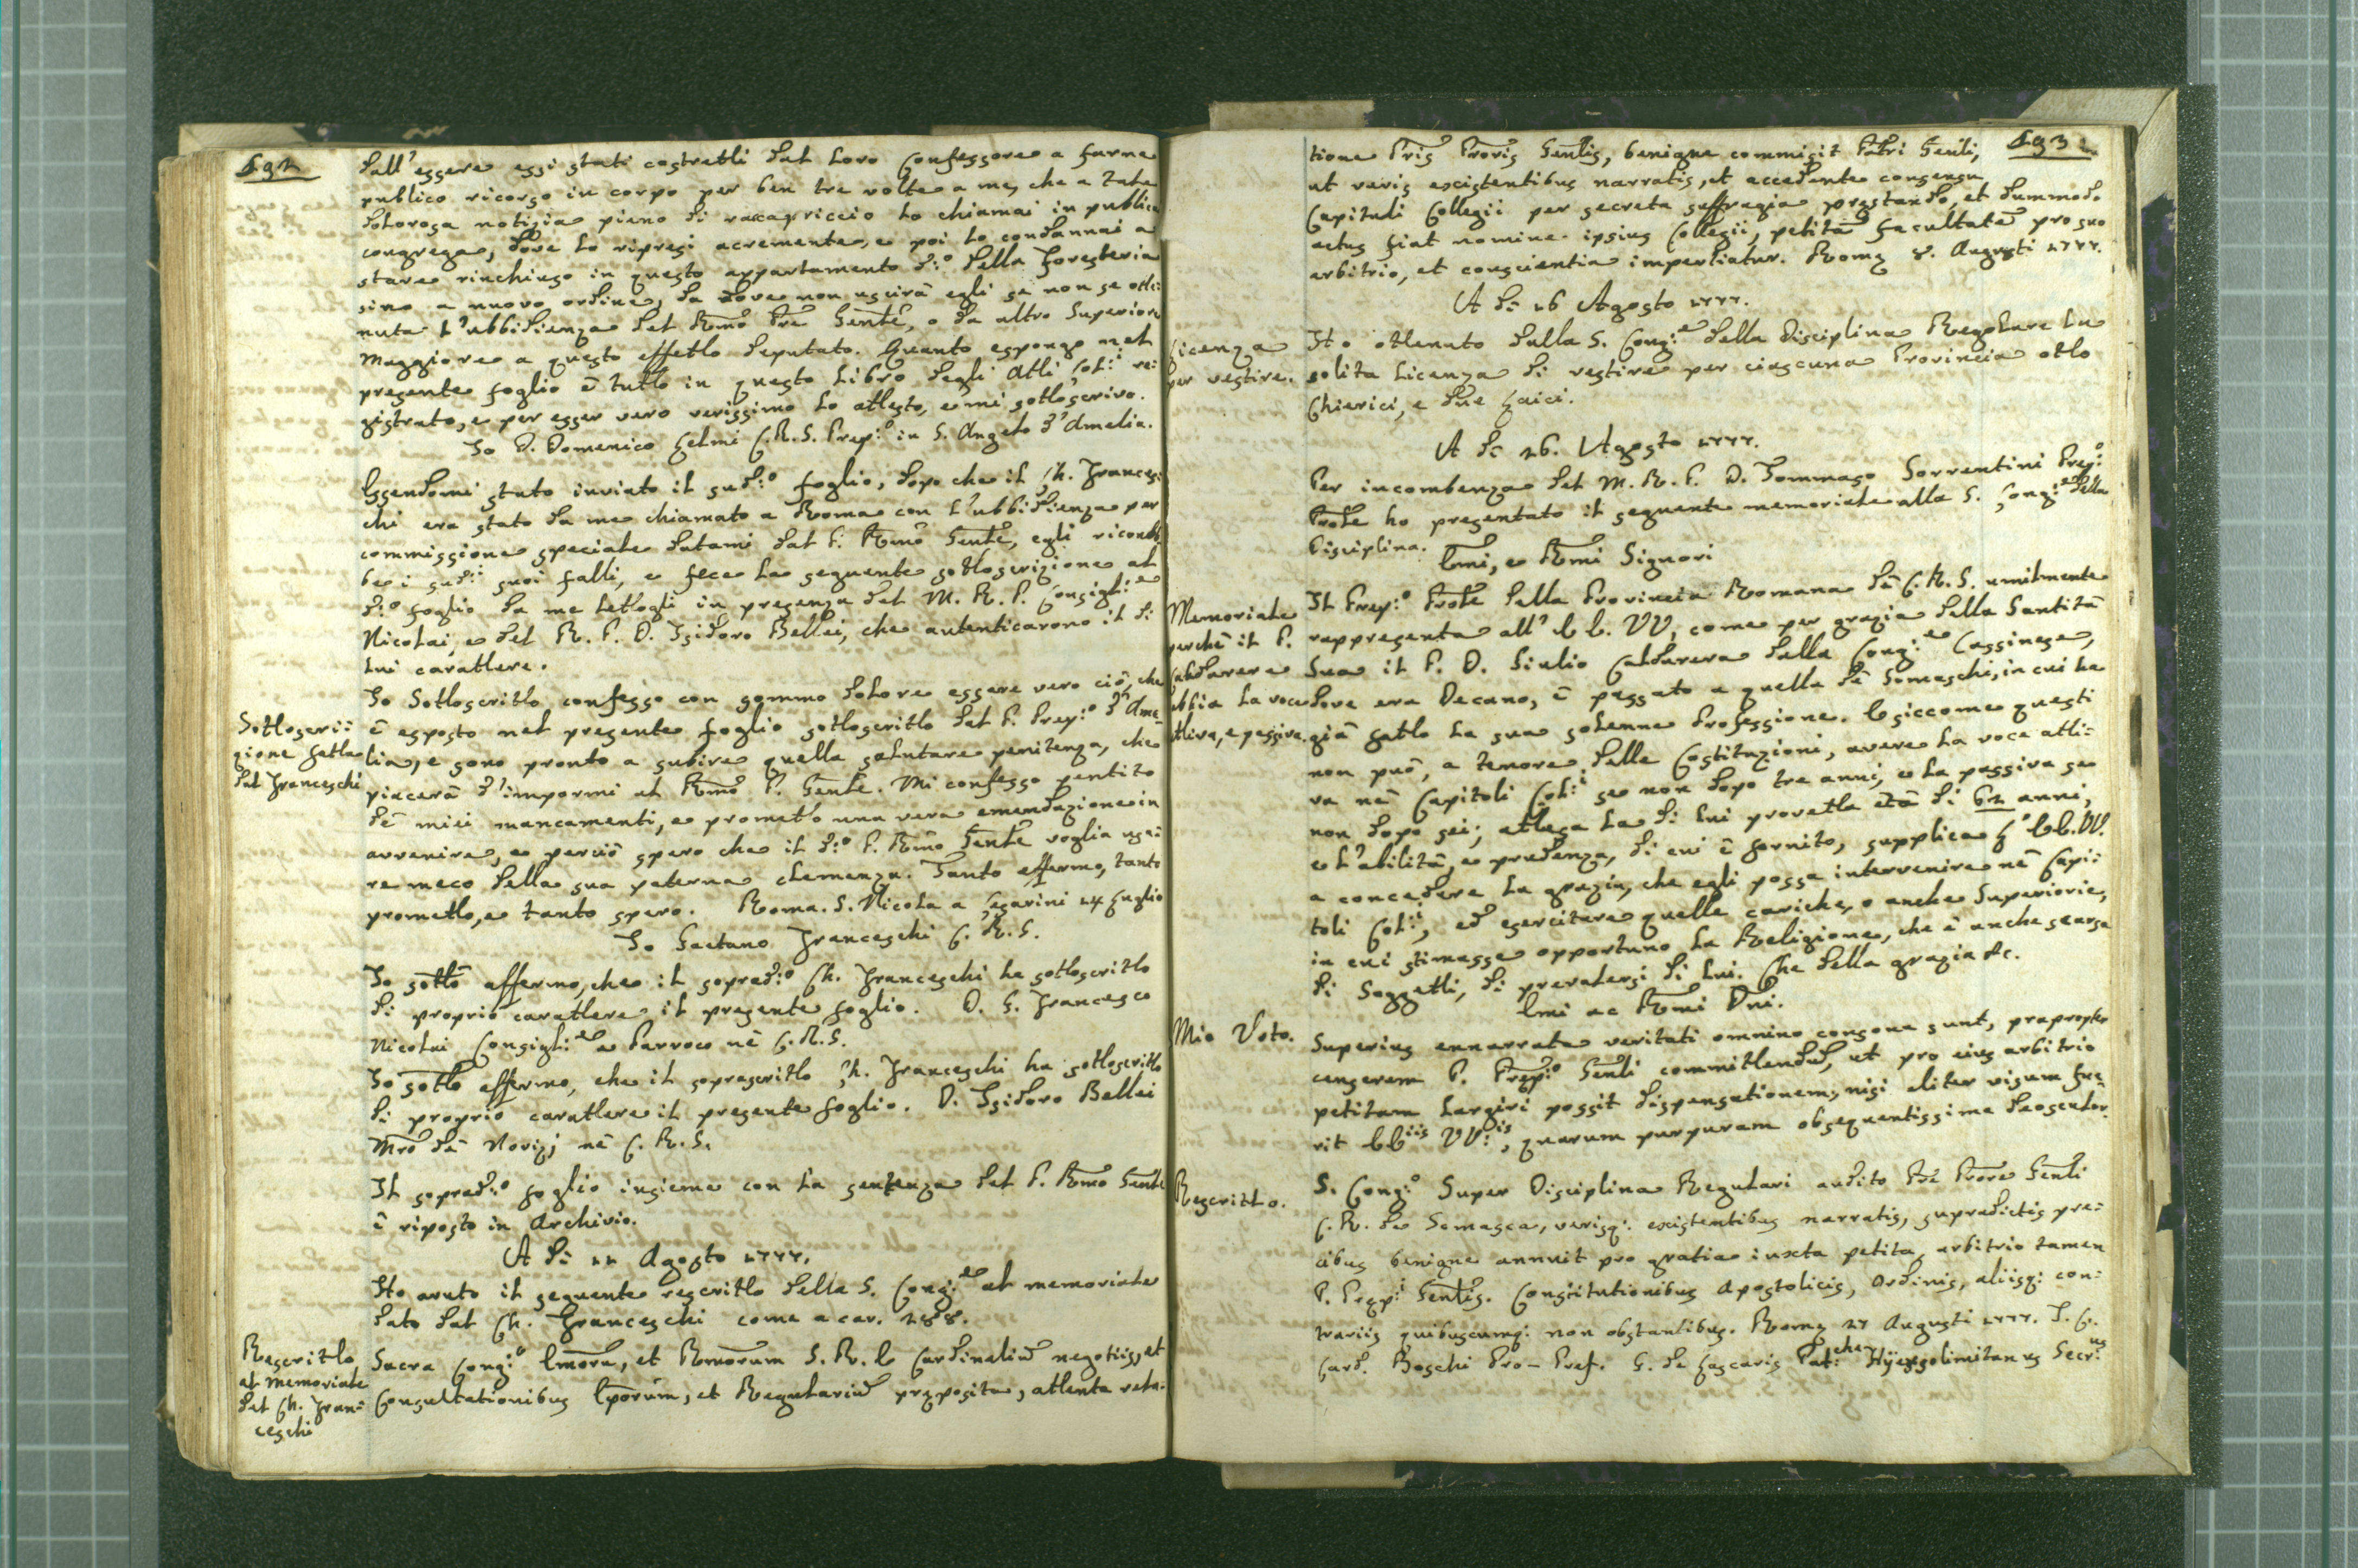 192
dall'essere essi stati costretti dal loro Confessore a farne
publico ricorso in corpo per ben tre volte a me, che a tale
dolorosa notizia pieno di raccapriccio lo chiamai in publica
congrega, dove lo ripresi acremente, e poi lo condannai a
stare rinchiuso in questo appartamento d:o della Foresteria
sino a nuovo ordine, da dove non uscirà egli se non se otte:
nuta l'ubbidienza del Rmo Pre Gente, o da altro Superiore
Maggiore a questo effetto deputato. Quanto espongo nel
presente foglio è tutto in questo Libro degli Atti Col:i re:
gistrato, e per esser vero verissimo lo attesto, e mi sottoscrivo.
Io D. Domenico Gelmi C.R.S. Prep:o in S. Angelo d'Amelia.
Essendomi stato inviato il sud:o foglio, dopo che il Ch. Frances:
chi era stato da me chiamato a Roma con l'ubbidienza per
commissione speciale datami dal P. Rmo Gente, egli riconob:
be i sud:i suoi falli, e fece la seguente sottoscrizione al
d:o foglio da me lettogli in presenza del M. R. P. Consigl:e
Nicolai, e del R. P. D. Isidoro Bellei, che autenticarono il di
lui carattere.
Sottoscri:
zione fatta
dal Franceschi
Io Sottoscritto confesso con sommo dolore essere vero ciò, che
è esposto nel presente foglio sottoscritto dal P. Prep:o d'Ame
lia, e sono pronto a subire quella salutare penitenza, che
piacerà d'impormi al Rmo P. Gente. Mi confesso pentito
dè miei mancamenti, e prometto una vera emendazione in
avvenire, e perciò spero che il d:o P. Rmo Gente voglia usa:
re meco della sua paterna clemenza. Tanto affermo, tanto
prometto, e tanto spero. Roma. S. Nicola a Cesarini 14 Luglio
Io Gaetano Franceschi C. R. S.
Io sotto affermo, che il soprad:o Ch. Franceschi ha sottoscritto
di proprio carattere il presente foglio. D. G. Francesco
Nicolai Consigli:e e Parroco nè C.R.S.
Io sotto affermo, che il soprascritto Ch. Franceschi ha sottoscritto
di proprio carattere il presente foglio. D. Isidoro Bellei
Mro dè Novizj nè C. R. S.
Il soprad:o foglio insieme con la sentenza del P. Rmo Gente
è riposto in Archivio.
A dì 11 Agosto 1777.
Ho avuto il seguente rescritto della S. Cong:e al memoriale
dato dal Ch. Franceschi come a car. 188.
Rescritto
al memoriale
del Ch. Fran:
ceschi
Sacra Cong:o Emorũ, et Rmorum S. R. E Cardinaliũ negotiis, et
Consultationibus Eporũm, et Regulariũ pręposita, attenta rela:
193
tione Pris Proris Genlis, benigne commisit Patri Genli,
ut veris existentibus narratis, et accedente consensu
Capituli Collegii per secreta suffragia pręstando, et dummodo
actus fiat nomine ipsius Collegii, petitã facultatẽ pro suo
arbitrio, et conscientia impertiatur. Romę 8. Augusti 1777.
A dì 16 Agosto 1777.
Licenza
per vestire.
Ho ottenuto dalla S. Cong:e della Disciplina Regolare la
solita licenza di vestire per ciascuna Provincia otto
Chierici, e due Laici.
A dì 26. Agosto 1777.
Per incombenza del M. R. P. D. Tommaso Sorrentini Prep:o
Prole ho presentato il seguente memoriale alla S. Cong:e della
Disciplina.
Emi, e Rmi Signori
Memoriale
perchè il P.
Caldarera
abbia la voce
attiva, e passiva.
Il Prep:o Prole della Provincia Romana dè C. R. S. umilmente
rappresenta all' E E. VV, come per grazia della Santità
Sua il P. D. Giulio Caldarera dalla Cong:e Cassinese,
dove era Decano, è passato a quella dè Somaschi, in cui ha
già fatto la sua solenne Professione. E siccome questi
non può, a tenore delle Costituzioni, avere la voce atti:
va nè Capitoli Col:i se non dopo tre anni, e la passiva se
non dopo sei; attesa la di lui provetta età di 62 anni,
e l'abilità, e prudenza, di cui è fornito, supplica l'EE.VV.
a concedere la grazia, che egli possa intervenire nè Capi:
toli Col:i, ed esercitare quelle cariche, o anche Superiorie,
in cui stimasse opportuno la Religione, che è anche scarsa
di Soggetti, di prevalersi di lui. Che della grazia &c.
Emi ac Rmi Dni.
Mio Voto.
Superius enarrata veritati omnino consona sunt, propropter
censerem P. Pręp:o Genli committendũ, ut pro eius arbitrio
petitam largiri possit dispensationem, nisi aliter visum fue
rit EEiis VV:is, quarum purpuram obsequentissime deosculor.
Rescritto.
S. Cong:o Super Disciplina Regulari audito Pre Prore Genli
C. R. de Somasca, verisq: existentibus narratis, supradictis pre:
cibus benigne annuit pro gratia iuxta petita, arbitrio tamen
P. Pręp:i Genlis. Constitutionibus Apostolicis, Ordinis, aliisq: con:
trariis quibuscumq: non obstantibus. Romę 27 Augusti 1777. I. C.
Card. Boschi Pro-Pref. G. de Lascaris Pat:cha Hyerosolimitanus Secr:us